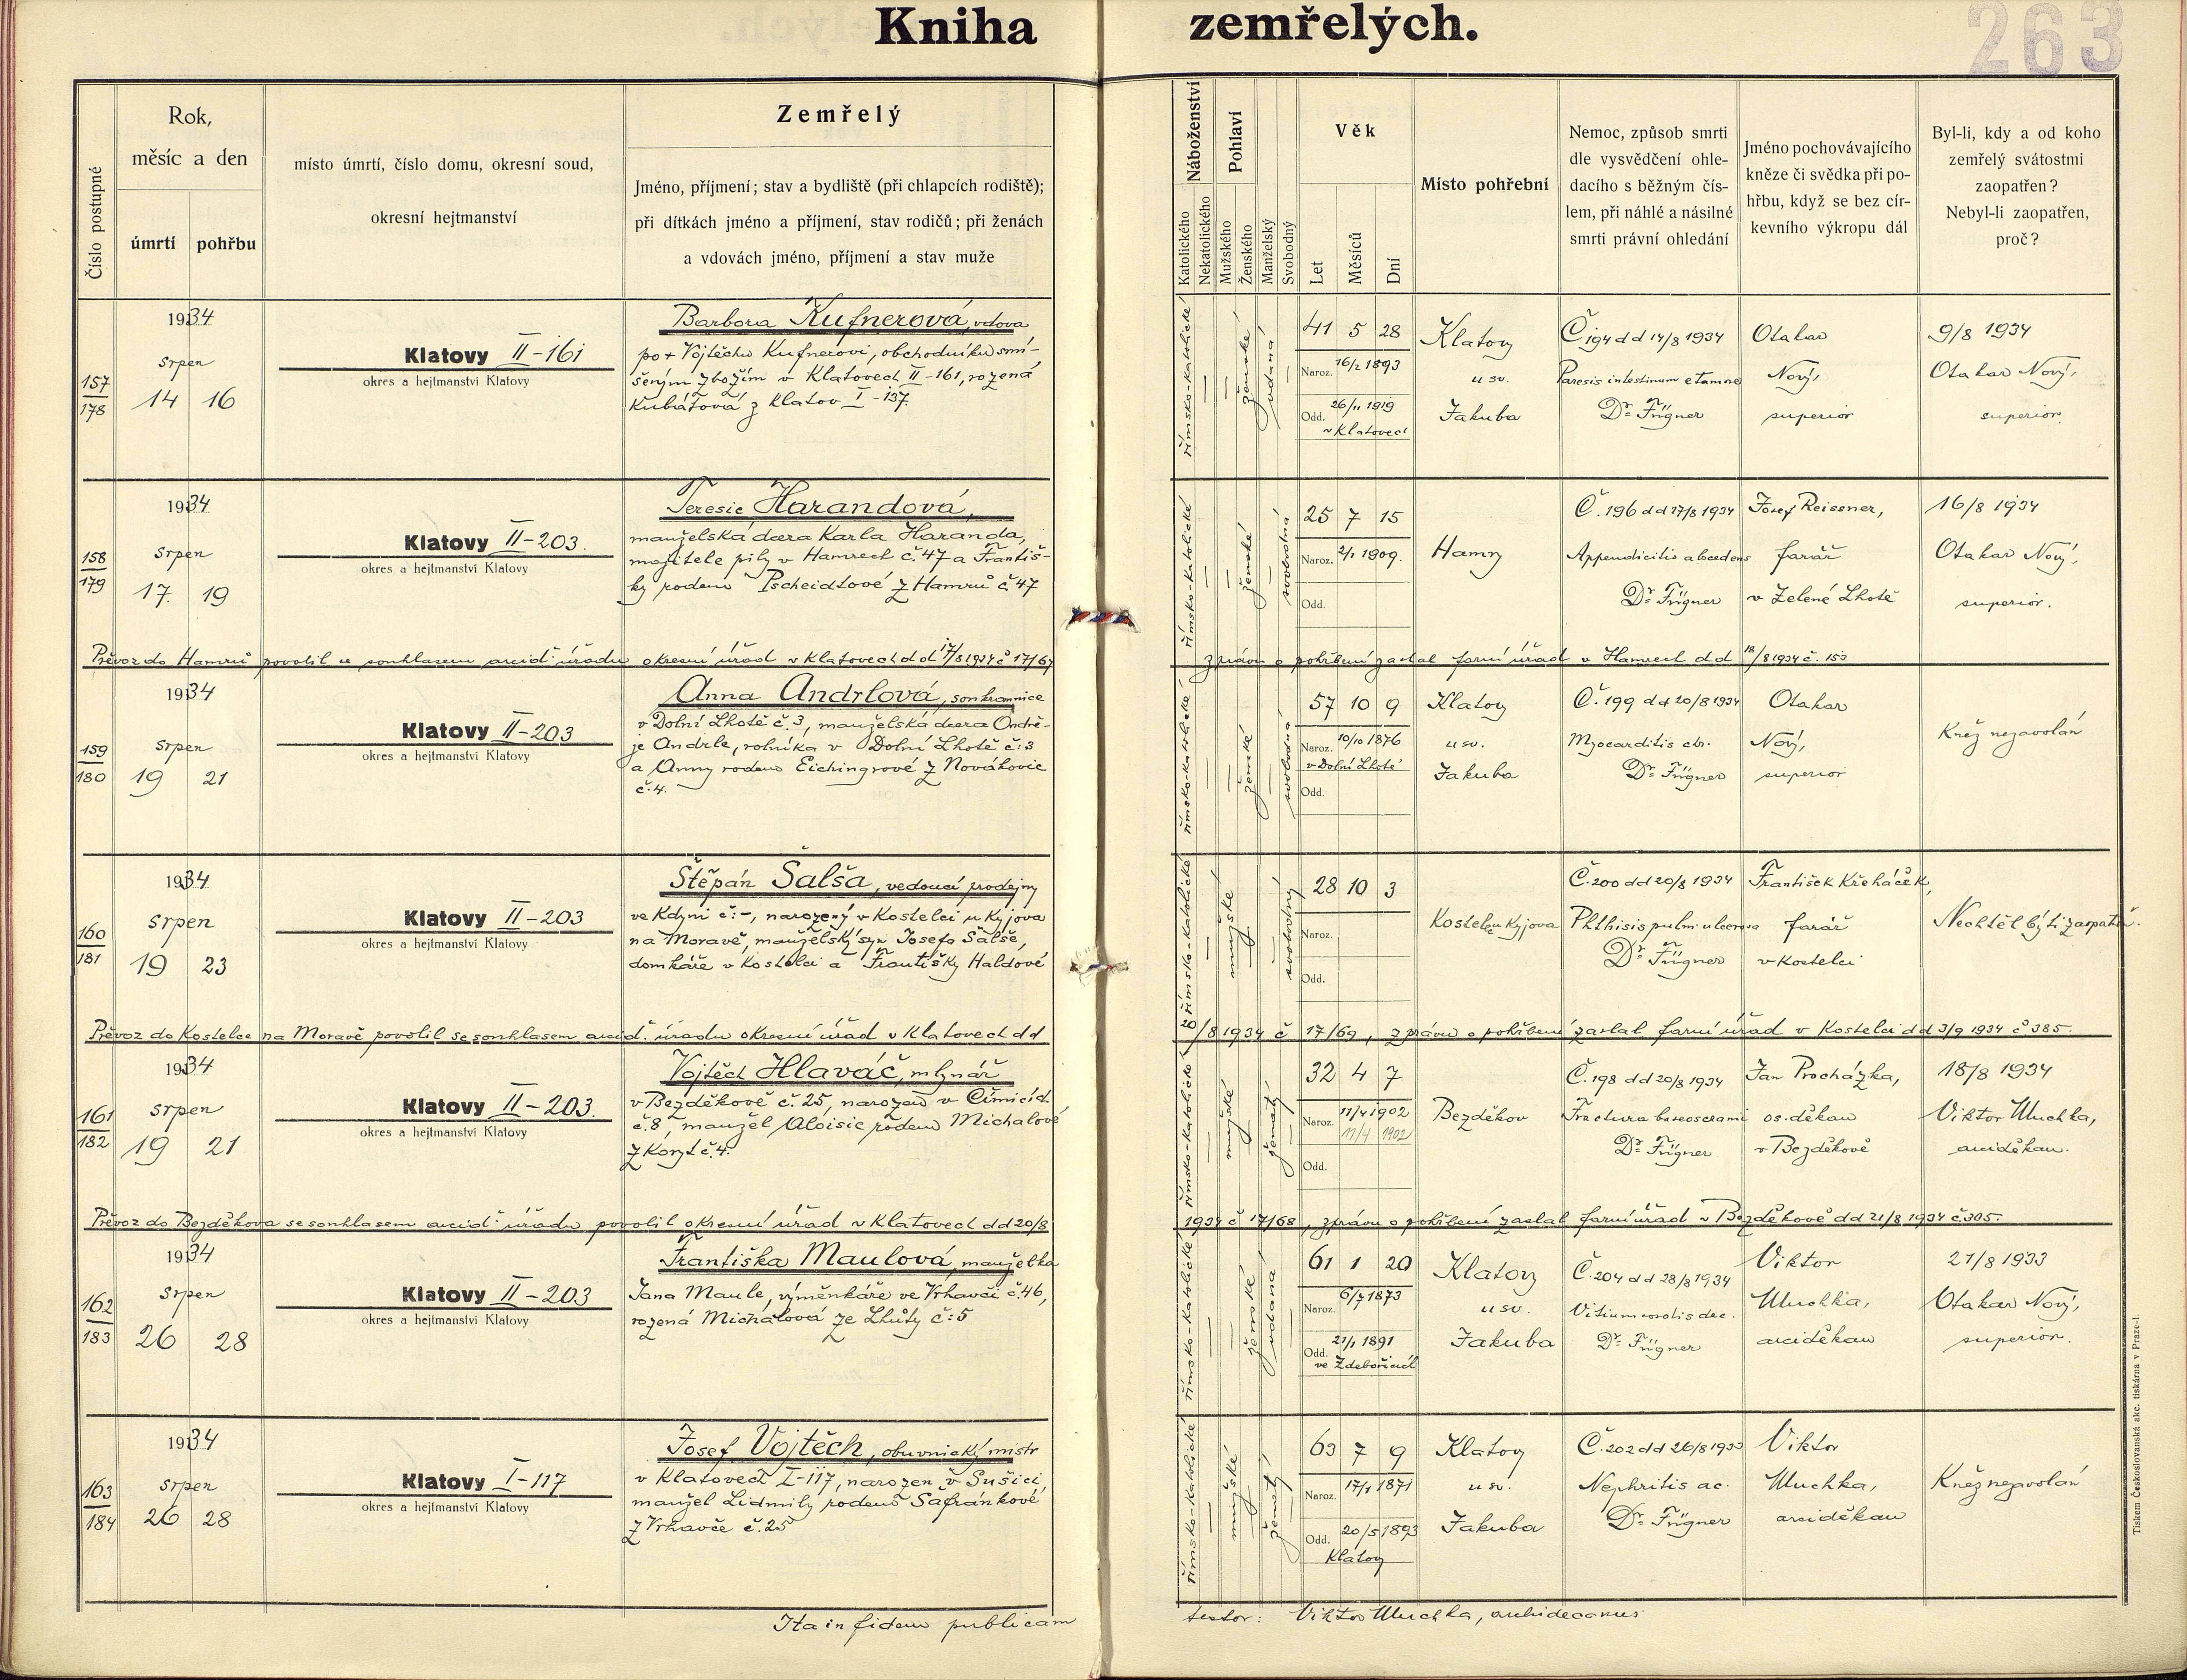 Kniha zemřelých.
263
Číslo postupné
Rok,
měsíc a den
úmrtí
pohřbu
místo úmrtí, číslo domu, okresní soud,
okresní hejtmanství
Zemřelý
Jméno, příjmení; stav a bydliště (při chlapcích rodiště);
při dítkách jméno a příjmení, stav rodičů; při ženách
a vdovách jméno, příjmení a stav muže
Náboženství
Katolického
Nekatolického
Pohlaví
Mužského
Ženského
Manželský
Svobodný
Věk
Let
Měsíců
Dní
Místo pohřební
Nemoc, způsob smrti
dle vysvědčení ohle-
dacího s běžným čís-
lem, při náhlé a násilné
smrti právní ohledání
Jméno pochovávajícího
kněze či svědka při po-
hřbu, když se bez cír-
kevního výkropu dál
Byl-li, kdy a od koho
zemřelý svátostmi
zaopatřen?
Nebyl-li zaopatřen,
proč?
157
178
1934
srpen
14 16
Klatovy II-161
okres a hejtmanství Klatovy
Barbora Kufnerová, vdova
po + Vojtěchu Kufnerovi, obchodníku smí-
šeným zbožím v Klatovech II-161, rozená
Kubátová z Klatov I-137.
římsko-katolické
ženské
vdaná
41 5 28
Naroz. 16/2 1893
Odd. 26/11 1919
v Klatovech
Klatovy
u sv.
Jakuba
Č 194 dd 14/8 1934
Paresis intestinum
Dr. Fügner
Otakar
Nový,
superior
9/8 1934
Otakar Nový,
superior.
158
179
1934
srpen
17. 19
Klatovy II-203.
okres a hejtmanství Klatovy
Teresie Harandová,
manželská dcera Karla Haranda,
majitele pily v Hamrech č. 47 a Františ-
ky rodem Pscheidtové z Hamrů č 47
římsko-katolické
ženské
svobodná
25 7 15
Naroz. 2/1 1909.
Odd.
Hamry
Č. 196 dd 17/8 1934
Appendicitis abscedens
Dr. Fügner
Josef Reissner,
farář
v Zelené Lhotě
16/8 1934
Otakar Nový,
superior.
Převoz do Hamrů povolil se souhlasem arcid. úřadu okresní úřad v Klatovech dd 17/8 1934 č 17/67
zprávu o pohřbení zaslal farní úřad v Hamrech dd 18/8 1934 č. 153
159
180
1934
srpen
19 21
Klatovy II-203
okres a hejtmanství Klatovy
Anna Andrlová, soukromnice
v Dolní Lhotě č. 3, manželská dcera Ondře-
je Andrle, rolníka v Dolní Lhotě č: 3
a Anny rodem Eichingrové z Novákovic
č. 4.
římsko-katolické
ženské
svobodná
57 10 9
Naroz. 10/10 1876
v Dolní Lhotě
Odd.
Klatovy
u sv.
Jakuba
Č. 199 dd 20/8 1934
Myocarditis chr.
Dr. Fügner
Otakar
Nový,
superior
Kněz nezavolán
160
181
1934
srpen
19 23
Klatovy II-203
okres a hejtmanství Klatovy
Štěpán Šalša, vedoucí prodejny
ve Kdyni č: -, narozený v Kostelci u Kyjova
na Moravě, manželský syn Josefa Šalše,
domkáře v Kostelci a Františky Haldové
římsko-katolické
mužské
svobodný
28 10 3
Naroz.
Odd.
Kostelec u Kyjova
Č. 200 dd 20/8 1934
Phthisis pulm. ulcerosa
Dr. Fügner
František Křeháček,
farář
v Kostelci
Nechtěl býti zaopatř.
Převoz do Kostelce na Moravě povolil se souhlasem arcid. úřadu okresní úřad v Klatovech dd
/8 1934 č 17/69, zprávu o pohřbení zaslal farní úřad v Kostelci dd 3/9 1934 č 385.
161
182
1934
srpen
19 21
Klatovy II-203.
okres a hejtmanství Klatovy
Vojtěch Hlaváč, mlynář
v Bezděkově č. 25, narozen v Čimicích
č. 8, manžel Aloisie rodem Michalové
z Koryt č. 4.
římsko-katolické
mužské
ženatý
32 4 7
Naroz. 11/4 1902
11/4 1902
Odd.
Bezděkov
Č. 198 dd 20/8 1934
Fractura baseos crami
Dr. Fügner
Jan Procházka,
os. děkan
v Bezděkově
18/8 1934
Viktor Muchka,
arciděkan.
Převoz do Bezděkova se souhlasem arcid. úřadu povolil okresní úřad v Klatovech dd 20/8
1934 č 17/68, zprávu o pohřbení zaslal farní úřad v Bezděkově dd 21/8 1934 č. 305.
162
183
1934
srpen
26 28
Klatovy II-203
okres a hejtmanství Klatovy
Františka Maulová, manželka
Jana Maule, výměnkáře ve Vrhavči č. 46,
rozená Michalová ze Lhůty č: 5
římsko-katolické
ženské
vdaná
61 1 20
Naroz. 6/7 1873
Odd. 27/1 1891
ve Zdebořicích
Klatovy
u sv.
Jakuba
Č. 204 dd 28/8 1934
Vitium cordis dec.
Dr. Fügner
Viktor
Muchka,
arciděkan
21/8 1933
Otakar Nový,
superior.
163
184
1934
srpen
26 28
Klatovy I-117
okres a hejtmanství Klatovy
Josef Vojtěch, obuvnický mistr
v Klatovech I-117, narozen v Sušici,
manžel Lidmily rodem Šafránkové
z Vrhavče č. 25
římsko-katolické
mužské
ženatý
63 7 9
Naroz. 17/1 1871
Odd. 20/5 1893
Klatovy
Klatovy
u sv.
Jakuba
Č. 202 dd 26/8 1933
Nephritis ac.
Dr. Fügner
Viktor
Muchka,
arciděkan
Kněz nezavolán
Ita in fidem publicam
testor: Viktor Muchka, archidecanus
Tiskem Československá akc. tiskárna v Praze-I.